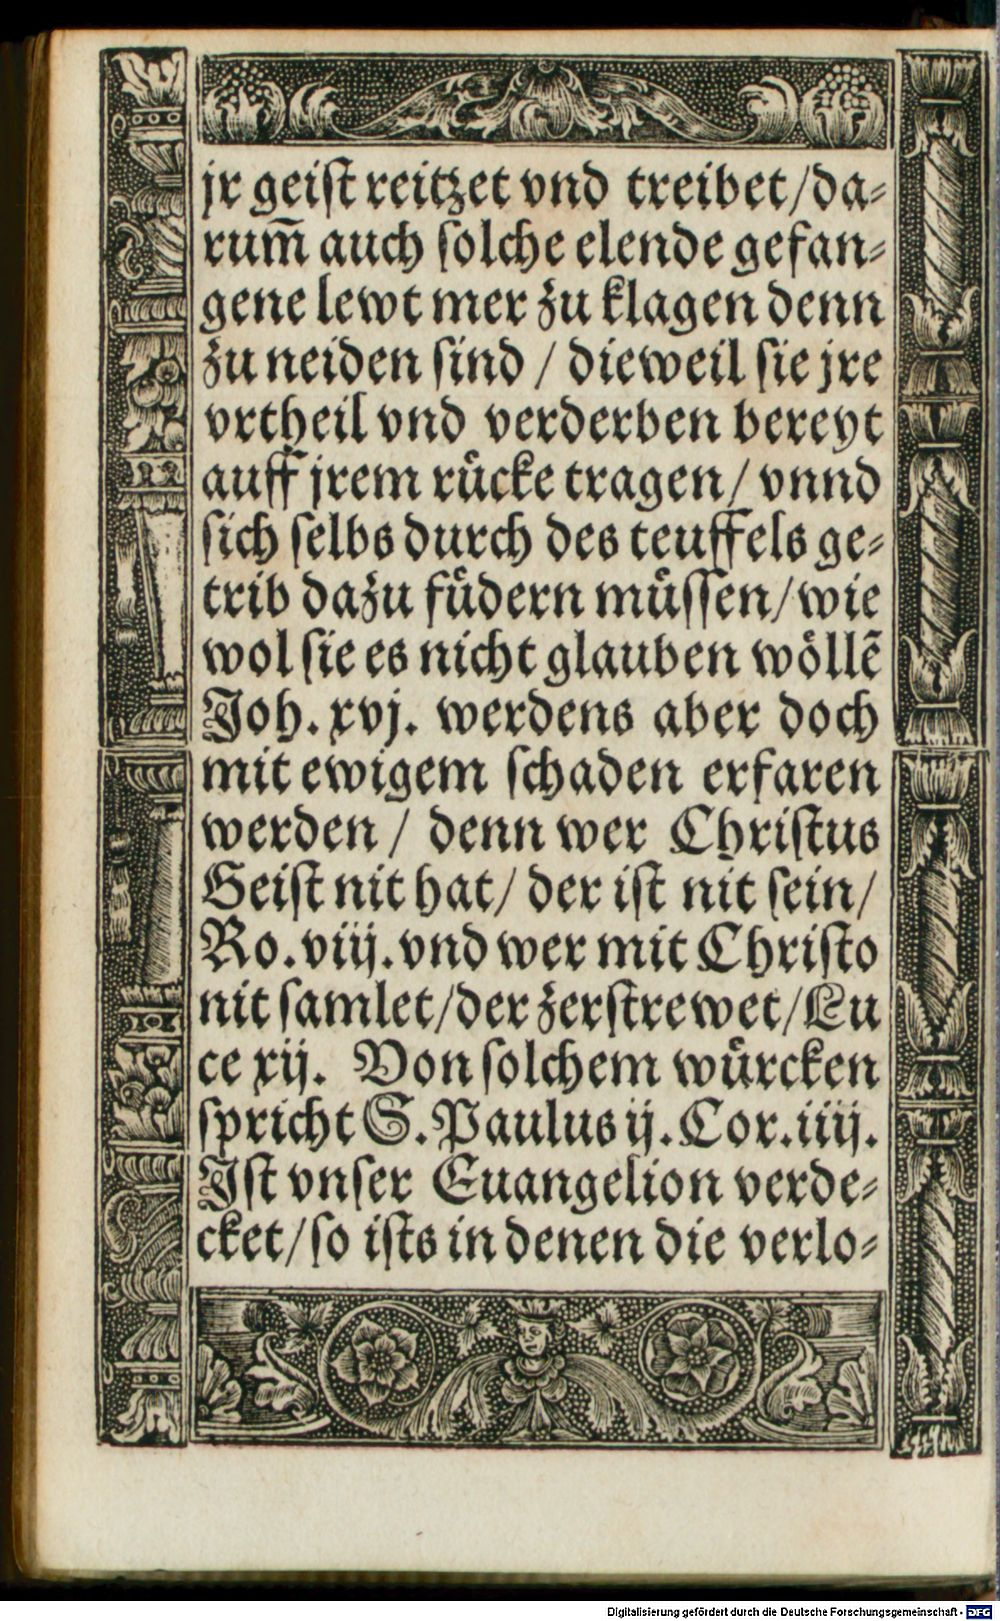 jr geiſt reitzet vnd treibet/da⸗
rum̄ auch ſolche elende gefan⸗
gene lewt mer zu klagen denn
zu neiden ſind / dieweil ſie jre
vrtheil vnd verderben bereyt
auff jrem rücke tragen/ vnnd
ſich ſelbs durch des teuffels ge⸗
trib dazu füdern müſſen/wie
wol ſie es nicht glauben wöllē
Joh. xvj. werdens aber doch
mit ewigem ſchaden erfaren
werden/ denn wer Chriſtus
Geiſt nit hat/ der iſt nit ſein/
Ro. viij. vnd wer mit Chriſto
nit ſamlet/der zerſtrewet/Lu
ce xij. Von ſolchem würcken
ſpricht S. Paulus ij. Cor. iiij.
Iſt vnſer Euangelion verde⸗
cket/ſo iſts in denen die verlo⸗
Digitalisierung gefördert durch die Deutsche Forschungsgemeinschaft - DFG